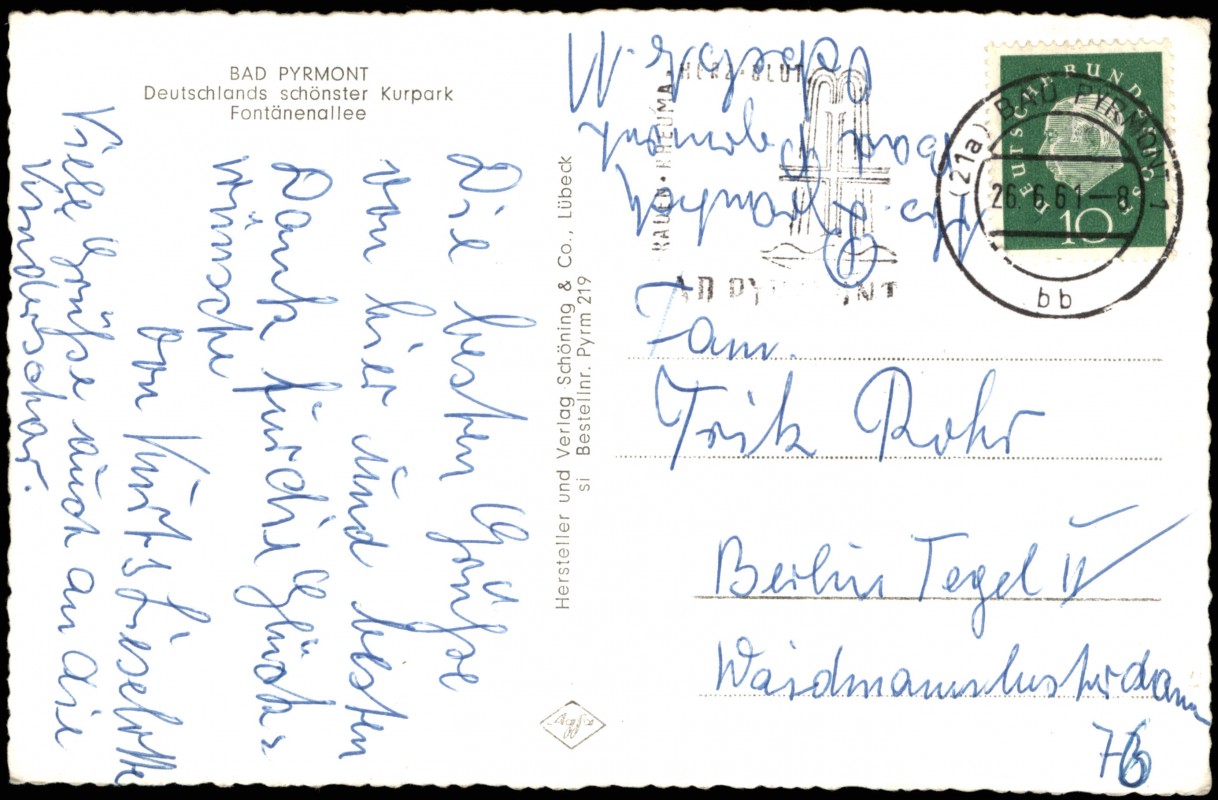 BAD PYRMONT
Deutschlands schönster Kurpark
Fontänenallee
Die besten Grüße
von hier und besten
Dank für die Glück-
wünsche
von Kurt & Lieselotte
Viele Grüße auch an die
Kinderschar.
Hersteller und Verlag Schöning & Co., Lübeck
si Bestellnr. Pyrm 219
Bad Pyrmont
HERZ·BLUT
RHEUMA·
BAD PYRMONT
DEUTSCHE BUNDESPOST
10
(21a) BAD PYRMONT 1
26.6.61-8
bb
Fam.
Fritz Rohr
Berlin Tegel
Waidmannslusterdamm
76